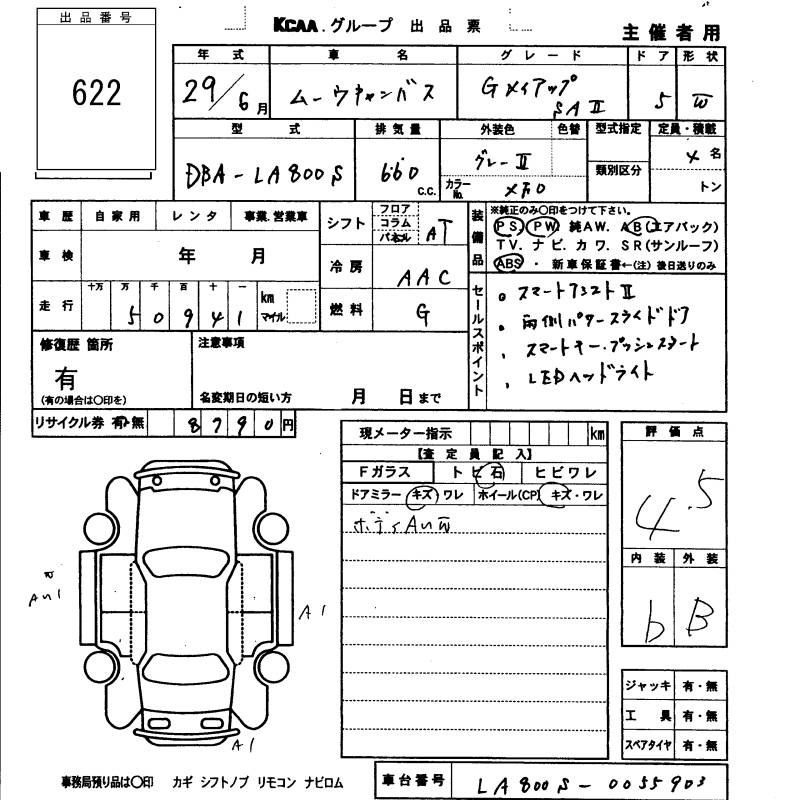 出品番号
622
KCAA.グループ 出品票
主催者用
年式 車名 グレード ドア 形状
29/6月 ムーヴキャンバス Gメイクアップ SAⅡ 5 W
型式 排気量 外装色 色替 型式指定 定員・積載
DBA-LA800S 660 C.C. グレーⅡ 類別区分 メ名
カラーNo. トン
車歴 自家用 レンタ 事業.営業車
シフト フロア コラム パネル AT
装備品
※純正のみ○印をつけて下さい。
PS. PW. 純AW. AB(エアバック)
TV. ナビ. カワ. SR(サンルーフ)
ABS・新車保証書←(注)後日送りのみ
車検 年 月
冷房 AAC
走行 十万 万 千 百 十 一
50941 km マイル
燃料 G
セールスポイント
。スマートアシストⅡ
・両側パワースライドドア
・スマートキー・プッシュスタート
・LEDヘッドライト
修復歴 箇所
有
(有の場合は○印を)
注意事項
名変期日の短い方 月 日まで
リサイクル券 有・無 8790円
現メーター指示 km
【査定員記入】
Fガラス トビ石 ヒビワレ
ドアミラー キズ・ワレ ホイール(CP) キズ・ワレ
ボディAUW
評価点
4.5
内装 外装
b B
AU1
A1
A1
ジャッキ 有・無
工具 有・無
スペアタイヤ 有・無
事務局預り品は○印 カギ シフトノブ リモコン ナビロム
車台番号 LA800S-0055903